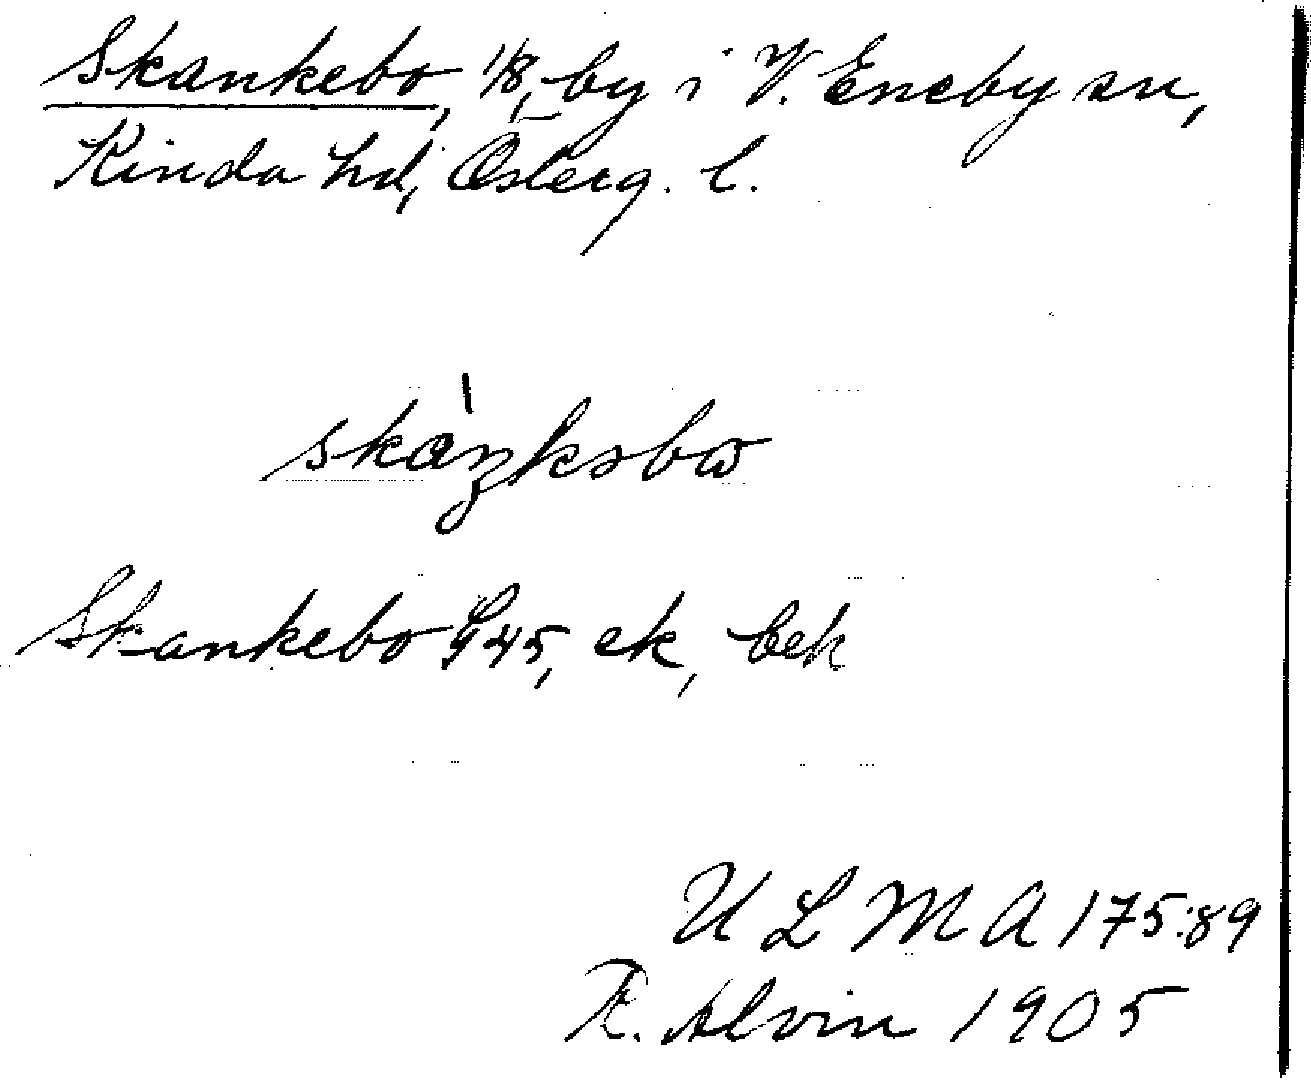 Skankebo, 1/8, by i V. Eneby sn,
Kinda hd, Österg. l.
skàŋksbω
Skankebo 945, ek, bek
U L M A 175:89
R. Alvin 1905